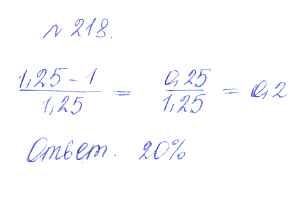 № 218.
(1,25 - 1)/1,25 = 0,25/1,25 = 0,2
Ответ. 20%